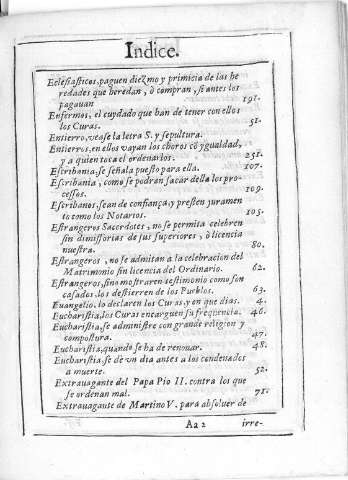 Indice.
Eclesiasticos, paguen diezmo y primicia de las he
redades que heredan, ò compran, si antes los
pagauan 191.
Enfermos, el cuydado que han de tener con ellos
los Curas. 51.
Entierro, vease la letra S. y sepultura.
Entierros, en ellos vayan los choros cõ ygualdad,
y a quien toca el ordenarlos. 251.
Escribania, se señala puesto para ella. 107.
Escribania, como se podran sacar della los pro-
cessos. 109.
Escribanos, sean de confiança, y presten juramen
to como los Notarios. 105.
Estrangeros Sacerdotes, no se permita celebren
sin dimissorias de sus superiores, ò licencia
nuestra. 80.
Estrangeros, no se admitan a la celebracion del
Matrimonio sin licencia del Ordinario. 62.
Estrangeros, sino mostraren testimonio como son
casados, los destierren de los Pueblos. 63.
Euangelio, lo declaren los Curas, y en que dias. 4.
Eucharistia, los Curas encarguen su frequencia. 46.
Eucharistia, se administre con grande religion y
compostura. 47.
Eucharistia, quando se ha de renouar. 48.
Eucharistia, se dè vn dia antes a los condenados
a muerte. 52.
Extrauagante del Papa Pio II. contra los que
se ordenan mal. 71.
Extrauagante de Martino V. para absoluer de
Aa 2 irre-